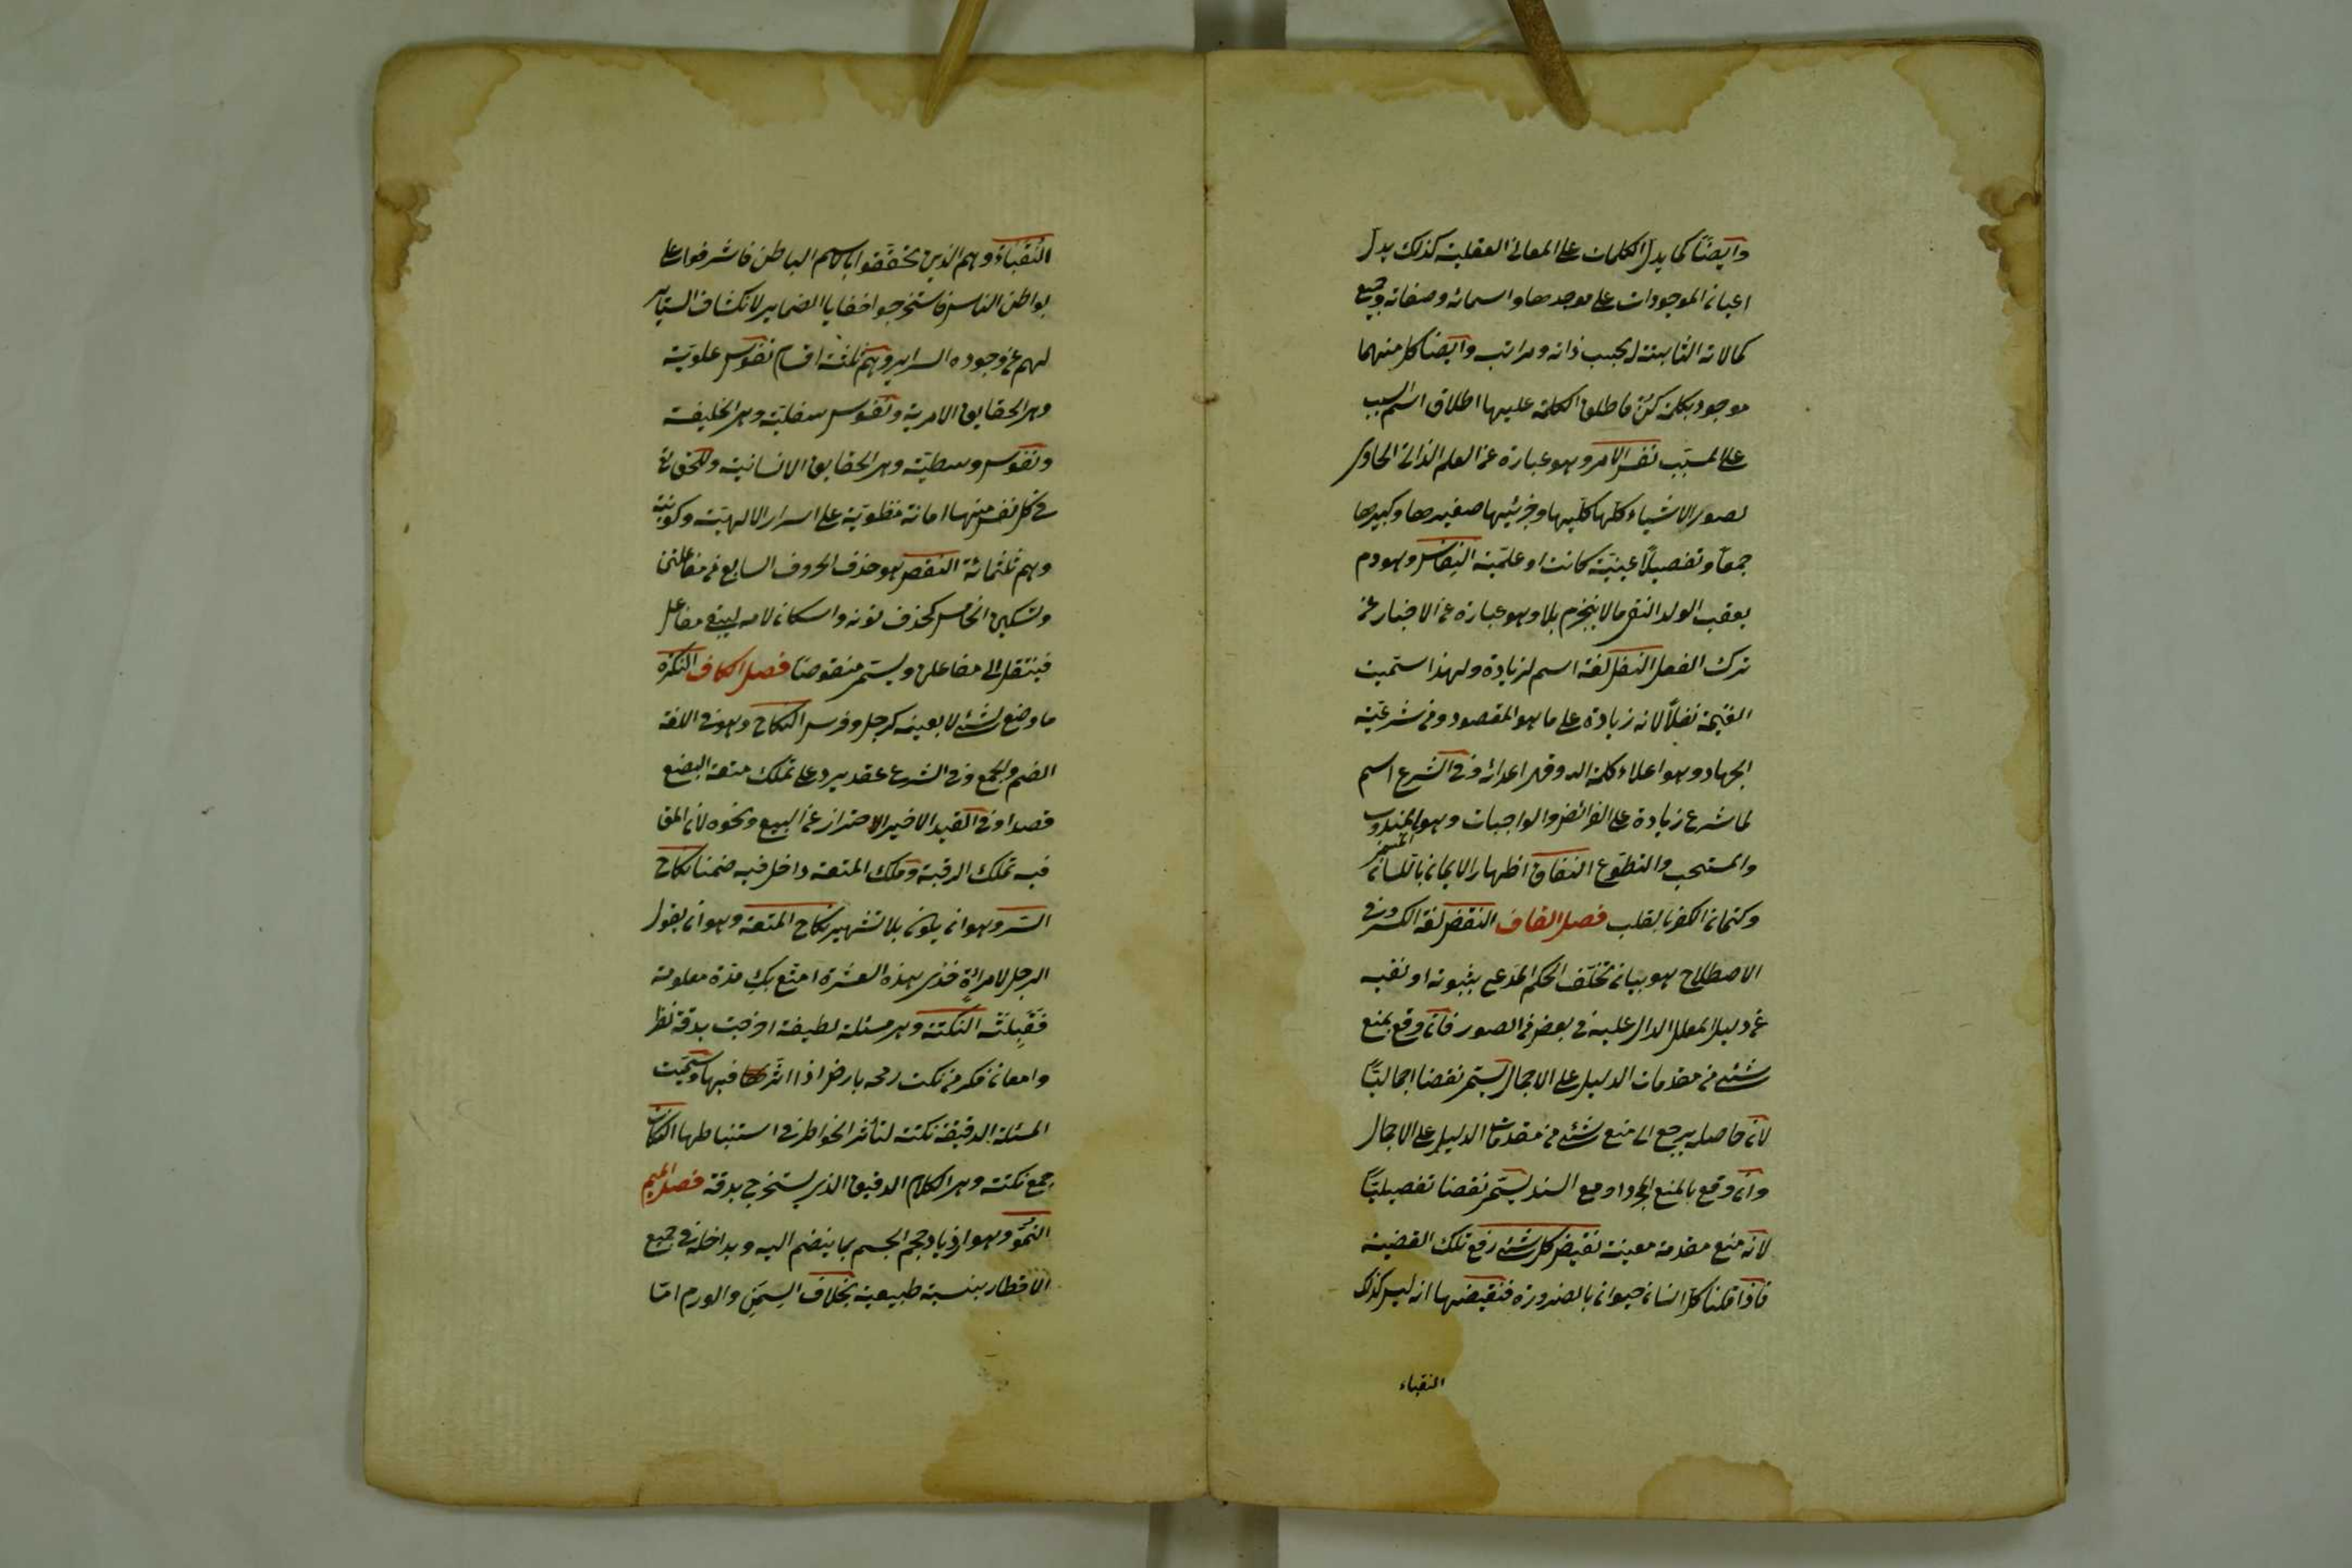 وايضًا كما يدل الكلمات على المعانى العقلية كذلك يدل
اعيان الموجودات على موجدها واسمائه وصفاته وجميع
كمالاته الثابتة له بحسب ذاته ومراتبه وايضا كل منهما
موجود بكلمة كن فاطلق الكلمة عليها اطلاق اسم السبب
على المسبّب نفس الامر وهو عبارة عن العلم الذاتى الحاوى
لصور الاشياء كلّها كلّيها وجزئيها صغيرها وكبيرها
جمعًا وتفصيلًا عينيّة كانت او علميّة النِفاس وهو دم
يعقب الولد النفى ما لا ينجزم بلا وهو عبارة عن الاخبار عن
ترك الفعل النفل لغة اسم لزيادة ولهذا استميت
الغنيمة نفلًا لانه زيادة على ما هو المقصود من شرعيّة
الجهاد وهو اعلاء كلمة الله وقهر اعدائه وفى الشرع اسم
لما شرع زيادة على الفرائض والواجبات وهو المسمّى بالمندوب
والمستحب والتطوّع النفاق اظهار الايمان باللسان
وكتمان الكفر بالقلب فصل القاف النقض لغة الكسر وفى
الاصطلاح هو بيان تخلّف الحكم المدعى بثبوته او نفيه
عن دليل المعلل الدال عليه فى بعض من الصور فان وقع بمنع
شئ من مقدمات الدليل على الاجمال يستمى نقضا اجماليّا
لان حاصله يرجع الى منع شئ من مقدمات الدليل على الاجمال
وان وقع بالمنع المجرد او مع السند يستمى نقضا تفصيليّا
لانه منع مقدمة معينة نقيض كل شئ رفع تلك القضية
فاذا قلنا كل انسان حيوان بالضرورة فنقيضها انه ليس كذلك
النقباء
النُقَباءُ وهم الذين تحققوا باسم الباطن فاشرفوا على
بواطن الناس فاستخرجوا خفايا الضماير لانكشاف الستاير
لهم عن وجوه السراير وهم ثلثة اقسام نفوس علويّة
وهى الحقايق الامرية ونفوس سفليّة وهى الخليقة
ونفوس وسطيّة وهى الحقايق الانسانية وللحق تع
فى كل نفس منها امانة منطويّة على اسرار الالهيّة وكونية
وهم ثلثمائة النقص هو حذف الحروف السابع من مفاعلتن
وتسكين الخامس كحذف نونه واسكان لامه ليبقى مفاعل
فينتقل الى مفاعلن ويستمى منقوصًا فصل الكاف النكرة
ما وضع لشئ لا بعينه كرجل وفرس النكاح وهو فى اللغة
الضم والجمع وفى الشرع عقد يرد على تملك منفعة البضع
قصدا وفى القيد الاخير الاحتراز عن البيع ونحوه لان المقا
فيه تملك الرقبة وملك المتعة داخل فيه ضمنا نكاح
السّر وهو ان يكون بلا تشهير نكاح المتعة وهو ان يقول
الرجل لامرأة خذى هذه العشرة امتّع بكِ مدّة معلومة
فَقَبِلَتْه النكتة وهى مسئلة لطيفة اخرجت بدقة نظر
وامعان فكر من نكت رمحه بارض اذا اثّر فيها وسمّيت
المسئلة الدقيقة نكتة لتأثر الخواطر فى استنباطها النكات
جمع نكتة وهى الكلام الدقيق الذى يستخرج بدقة فصل الميم
النُموّ وهو ازدياد حجم الجسم بما ينضم اليه ويداخله فى جميع
الاقطار بنسبة طبيعية بخلاف السِمَن والورم امّا